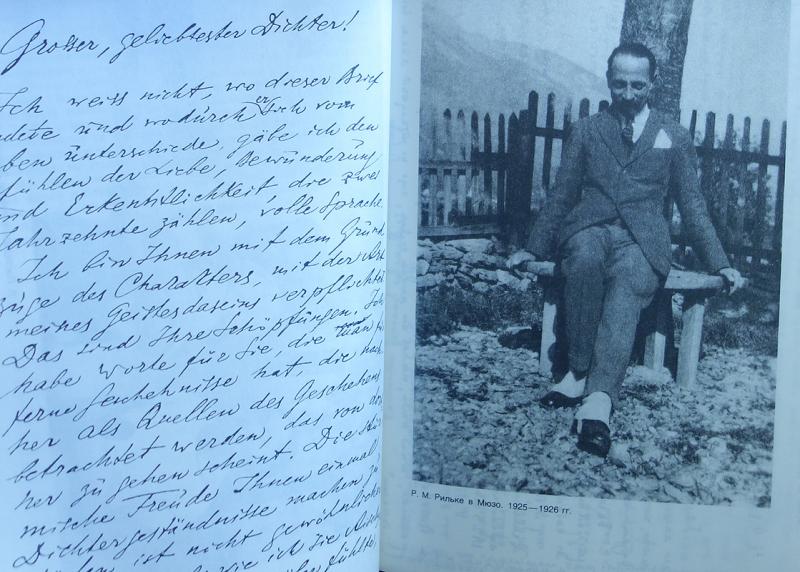 Grosser, geliebtester Dichter!
Ich weiss nicht, wo dieser Brief
ndete und wodurch er sich vom
ben unterschiede, gäbe ich den
fühlen der Liebe, Bewunderung
und Erkentlichkeit, die zwei
Jahrzehnte zählen, volle Sprache.
Ich bin Ihnen mit dem Grund
züge des Charakters, mit der Art
meines Geistesdaseins verpflichtet
Das sind Ihre Schöpfungen. Ich
habe worte für Sie, die man für
ferne Geschehnisse hat, die nach
her als Quellen des Geschehens
betrachtet werden, das von dort
her zu gehen scheint. Die stür
mische Freude Ihnen einmal
Dichtergeständnisse machen zu
ist nicht gewöhnlich
wie ich sie
fühlte,
Р. М. Рильке в Мюзо. 1925—1926 гг.